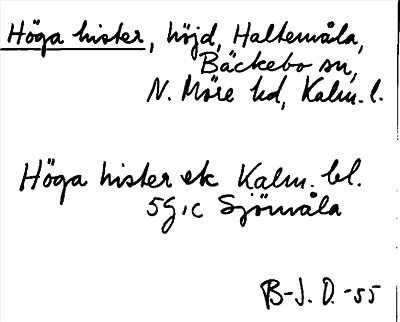 Höga hister, höjd, Haltemåla,
Bäckebo sn,
N. Möre hd, Kalm. l.
Höga hister ek Kalm. bl.
5G, c Sjömåla
B-J. O. -55